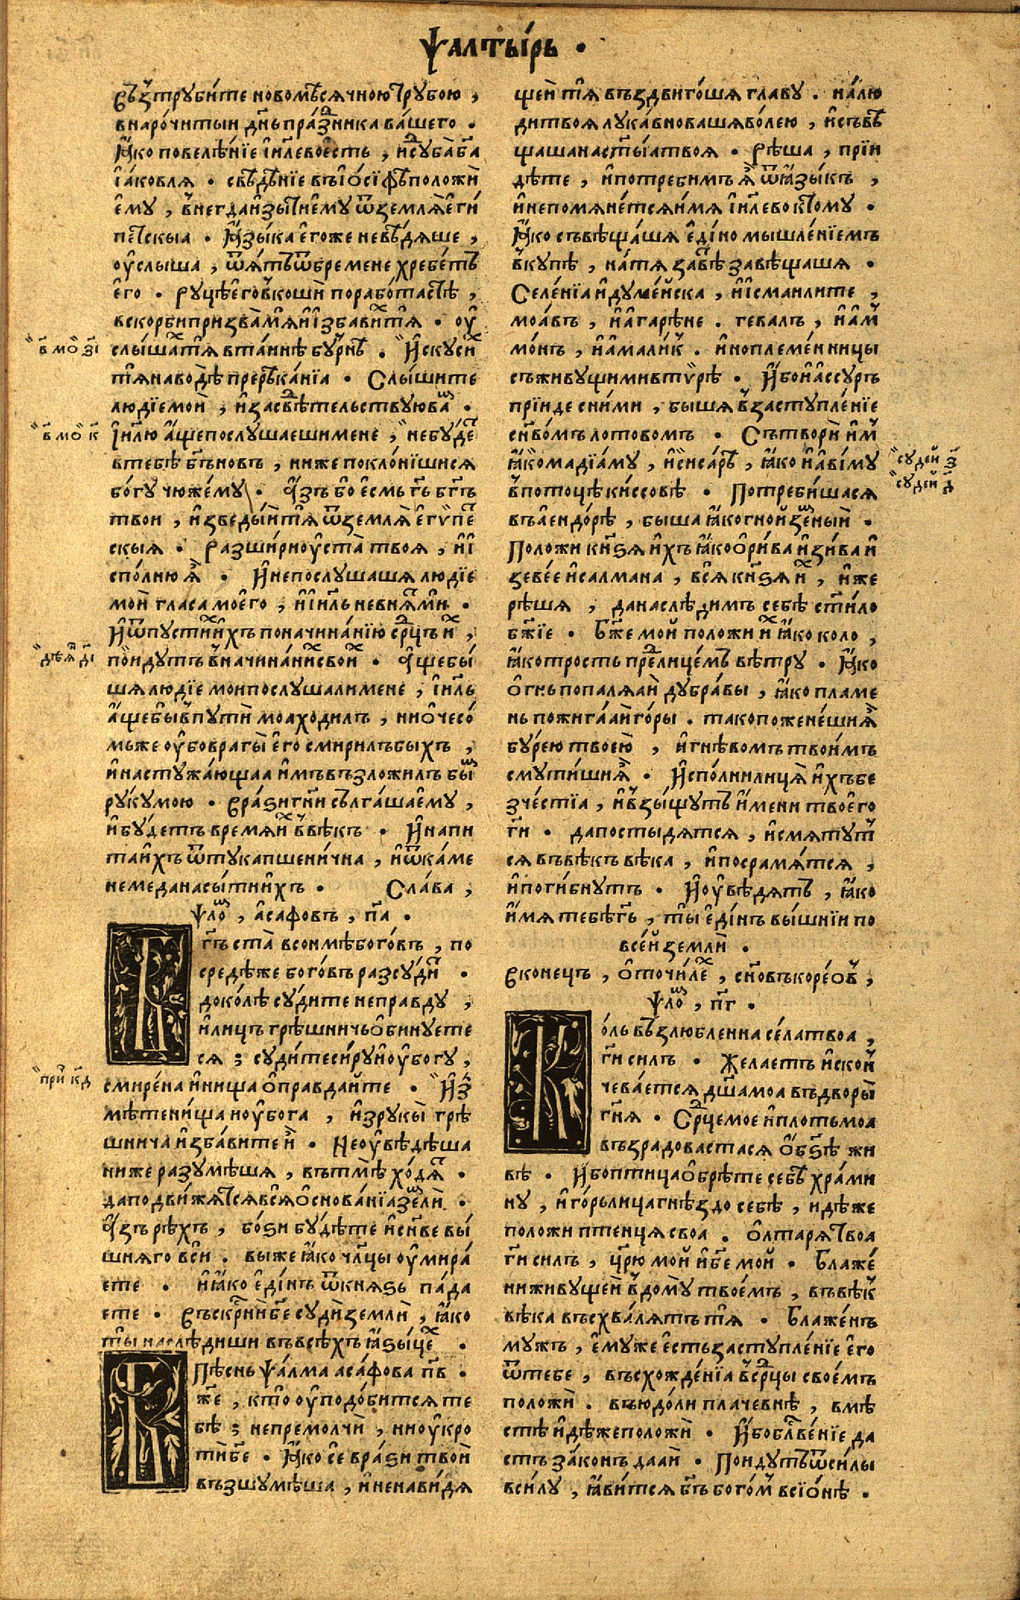 Ѱалты́рь .
въꙁтруби́те новомⷭ҇ѣсѧчною трꙋ́бою ,
внаро́читыи дн҃ь пра́ꙁⷣника ва́шего .
Ꙗ҆́ко повелѣ́нїе і҆и҃лево е҆́сть , и҆сꙋдъба бг҃а
і҆а́ковлѧ . свѣдѣ́нїе въ і҆о́сїфѣ положѝ
е҆мꙋ̀ , в҆негда и҆зы́ти е҆мꙋ ѿ землѧ̀ е҆ги́
петскыа . Ꙗ҆зы́ка е҆гоже невѣ́дѧше ,
оу҆слыша , ѿѧ́тъ ѿ бремене хребе́тъ
е҆го̀ . рꙋцѣ е҆го̀ в҆коши порабо́тастѣ ,
вскорби призва́ мѧ и҆ и҆збави́х тѧ . оу҆
слы́шах тѧ втайнѣ бꙋ́рнѣ . И҆скꙋсих
тѧ наводѣ̀ прерѣка́нїа . Слы́шите
людїе моѝ , и҆ засвѣ́тельствꙋю ва́мъ .
І҆и҃лю а҆́ще послꙋшаеши мене , небꙋ́де
втебѣ̀ бг҃ъ новъ , ниже покло́нишисѧ
бо́гꙋ чюже́мꙋ . А҆́зъ бо е҆смь гь҃ бг҃ъ
твои , и҆зведы́й тѧ ѿ землѧ̀ е҆гѵ́пе
скыѧ . разшири оу҆ста̀ твоѧ , и҆ и҆
спо́лню ѧ҆̀ . И҆ непослꙋшашѧ людїе
моѝ гласа мое́го , и҆ і҆и҃ль невнѧ́т мѝ .
И҆ ѿпꙋстих и҆́хъ поначина́нїю срⷣцъ и҆́х ,
по́идꙋтъ в҆начина́нїих свои́х . А҆́ще бы́
шѧ людїе мои послꙋшали мене , і҆и҃ль
а҆́ще бы в҆пꙋтѝ моа ходилъ , ниочесо́
мьже оу҆бо врагы̀ е҆го смирилъ быхъ ,
и҆ настꙋжа́ющаа и҆̀мъ въꙁложилъ бых
рꙋкꙋ мою . врази гн҃и сългаша е҆мꙋ̀ ,
и҆ бꙋ́детъ времѧ и҆́х в҆вѣкъ . И҆ напи
та и҆́хъ ѿ тꙋка пшени́чна , и҆ ѿ ка́ме
не меда насы́ти и҆́хъ . Сла́ва ,
Ѱло́м , а҆сафовъ , п҃а .
Бг҃ъ ста̀ всонмѣ бого́въ , по
средѣже бого́въ разсꙋди́т .
доко́лѣ сꙋдите неправдꙋ ,
и҆ лицъ грѣшничь ѻ҆бинꙋете
сѧ ; сꙋдите си́рꙋ и҆ оу҆богꙋ ,
смире́на и҆ нища ѻ҆правда́йте . И҆з
мѣте нища и҆ оу҆бога , и҆зрꙋкы̀ грѣ
шнича и҆збавите и҆̀ . Не оу҆вѣ́дѣша
ниже разꙋмѣ́шѧ , вътмѣ̀ хо́дѧт .
да подви́жꙋтсѧ всѧ ѻ҆снова́нїа землѝ .
А҆́зъ рѣхъ , бо́зи бꙋ́дѣте и҆ сн҃ове вы́
шнѧго всѝ . выже ꙗ҆́ко чл҃цы оу҆мира́
ете . и҆ ꙗ҆́ко е҆ди́нъ ѿ кнѧ́зь па́да
ете . въскрⷭнѝ бе҃ сꙋдѝ землѝ , ꙗ҆́ко
ты̀ наслѣдиши въ всѣ́хъ ꙗ҆зы́цѣх .
Пѣснь ѱа́лма аса́фова п҃в .
Бж҃е , кто̀ оу҆подо́битсѧ те
бѣ̀ ; непремолчѝ , ниоу҆кро
тѝ бе҃ . Ꙗ҆́ко се вра́зи твоѝ
въꙁшꙋмѣ́ша , и҆ ненави́дѧ
щеи тѧ въꙁдвиго́шѧ главꙋ . на́ лю
ди твоѧ лꙋка́вноваша во́лею , и҆ съвѣ
щаша на ст҃ы́ѧ твоѧ . рѣ́ша , прїи
дѣте , и҆ потребимъ ѧ҆̀ ѿ ꙗ҆зы́къ ,
и҆ непомѧне́тсѧ и҆́мѧ і҆и҃лево ктомꙋ .
Ꙗ҆́ко съвѣща́шѧ е҆ди́номышле́нїемъ
в҆кꙋпѣ , на́ тѧ завѣт завѣщашѧ .
Селе́нїа и҆дꙋме́йска , и҆ и҆смаилите ,
моа́въ , и҆ а҆гарѣне . гевалъ , и҆ а҆м
мо́нъ , и҆ а҆мали́к . и҆ноплеме́нницы
съживꙋщимивтѵ́рѣ . И҆бо и҆ а҆ссꙋръ
прїиде сними , бышѧ в҆застꙋпле́нїе
сн҃во́мъ лотовомъ . Сътворѝ и҆́м
ꙗ҆́ко мадїа́мꙋ , и҆ сиса́рѣ , ꙗ҆́ко и҆ а҆ви́мꙋ
в҆потоцѣ киссовѣ . Потреби́шасѧ
въ а҆ендо́рѣ , быша ꙗ҆́ко гно́й зе́мныи .
Положи кнѧ́ѕѧ и҆́хъ ꙗ҆́ко ѻ҆ри́ва и҆ зи́ва и҆
зеве́е и҆ салмана , всѧ кнѧ́ѕѧ и҆́х , и҆́же
рѣ́шѧ , да наслѣ́димъ себѣ̀ ст҃и́ло
бж҃їе . Бж҃е мой положи и҆́х ꙗ҆́ко коло ,
ꙗ҆́ко трость предлице́мъ вѣ́трꙋ . Ꙗ҆́ко
ѻ҆гнь попалѧ́ай дꙋбра́вы , ꙗ҆́ко пламе
нь пожига́ай го́ры . тако поженеши ѧ҆̀
бꙋ́рею твое́ю , и҆ гнѣ́вомъ твои́мъ
смꙋти́ши ѧ҆̀ . И҆спо́лни лица̀ и҆́хъ бе
зче́стїа , и҆ в҆зы́щꙋтъ и҆́мени твое́го
гн҃и . да постыдѧ́тсѧ , и҆ смѧтꙋт
сѧ въ вѣкъ вѣка , и҆ посрамѧ́тсѧ ,
и҆ поги́бнꙋтъ . И҆ оу҆вѣдѧтъ , ꙗ҆́ко
и҆́мѧ тебѣ гь҃ , ты̀ е҆ди́нъ вы́шнїи по
всей землѝ .
Вконецъ , ѻ҆ точи́лѣх , сн҃овъ коре́ов ,
Ѱло́м , п҃г .
Ко́ль въꙁлюбленна се́ла твоа ,
гн҃и силъ . Желаетъ и҆ скон
чева́етсѧ дш҃а моа въ дворы̀
гн҃ѧ . Срⷣце мое и҆ плоть моа
въꙁрадовастасѧ ѻ҆ бз҃ѣ жи
вѣ . И҆бо птица ѻ҆брѣте себѣ̀ храми
нꙋ , и҆ го́рьлица гнѣздо себѣ̀ , идѣже
положи птенцѧ своа . ѻ҆лтарѧ̀ твоа
гн҃и силъ , цр҃ю мой и҆ бе҃ мой . Блаже́
ни живꙋщей в҆домꙋ́ твое́мъ , въ вѣ́к
вѣка въсхва́лѧтъ тѧ . Блаже́нъ
мꙋжъ , е҆мꙋже е҆сть застꙋпле́нїе е҆го
ѿ тебе , въсхожде́нїа в҆ срⷣцы свое́мъ
положѝ . въ ю҆до́ли плачевнѣ , вмѣ
стѣ и҆дѣ́же положѝ . И҆бо блⷭве́нїе да
стъ зако́нъ даа́й . Поидꙋтъ ѿ силы
всилꙋ , ꙗ҆ви́тсѧ бг҃ъ бого́м в сїо́нѣ .
в҃ мо зі
в҃ мо к
дѣѧ дı
при кд
сꙋдей з
сꙋдей д